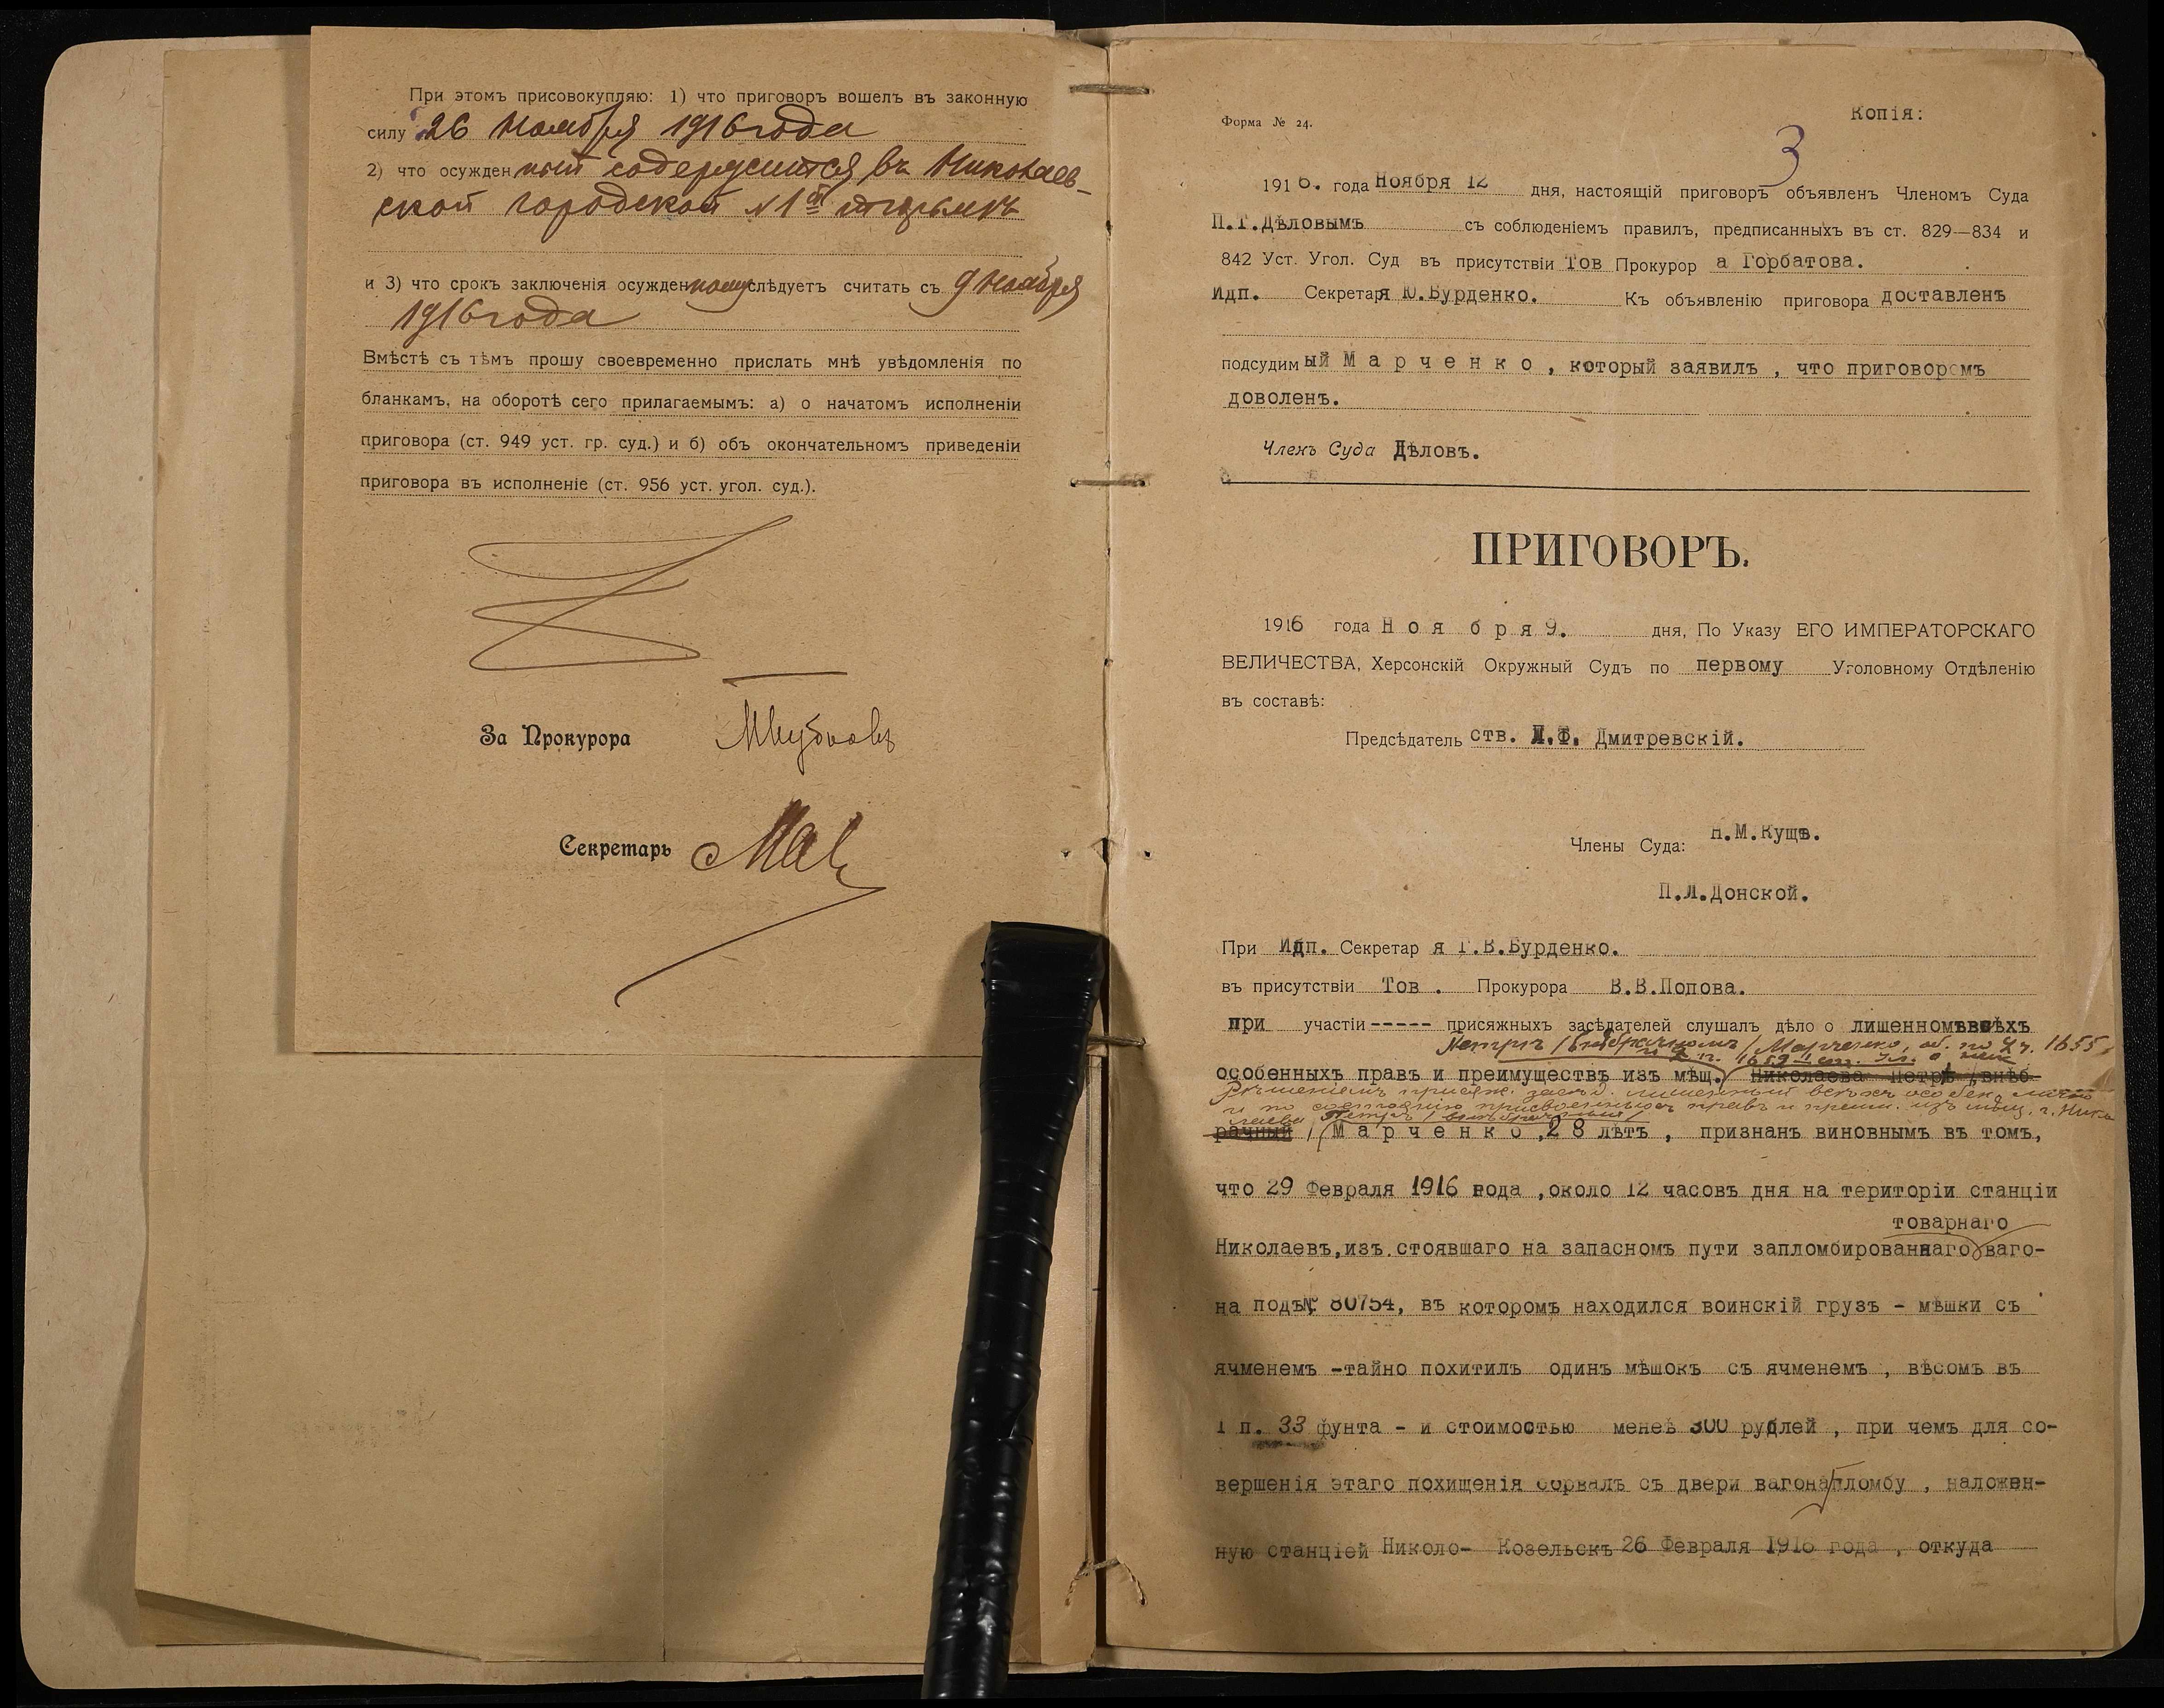 При этомъ присовокупляю: 1) что приговоръ вошелъ въ законную
силу 26 Ноября 1916 года
2) что осужденный содержится въ Николаев-
ской городской №1ой тюрьмѣ
и 3) что срокъ заключенія осужденному слѣдуетъ считать съ 9 Ноября
1916 года
Вмѣстѣ съ тѣмъ прошу своевременно прислать мнѣ увѣдомленія по
бланкамъ, на оборотѣ сего прилагаемымъ: а) о начатомъ исполненіи
приговора (ст. 949 уст. гр. суд.) и б) объ окончательномъ приведеніи
приговора въ исполненіе (ст. 956 уст. угол. суд.).
За Прокурора
Секретарь
Копія:
Форма № 24.
3
1916. года Ноября 12 дня, настоящій приговоръ объявленъ Членомъ Суда
П.Т.Дѣловымъ съ соблюденіемъ правилъ, предписанныхъ въ ст. 829—834 и
842 Уст. Угол. Суд въ присутствіи Тов Прокурор а Горбатова.
Идп. Секретаря Ю.Бурденко. Къ объявленію приговора доставленъ
подсудимый Марченко, который заявилъ, что приговоромъ
доволенъ.
Членъ Суда Дѣловъ.
ПРИГОВОРЪ.
1916 года Ноября 9. дня, По Указу ЕГО ИМПЕРАТОРСКАГО
ВЕЛИЧЕСТВА, Херсонскій Окружный Судъ по первому Уголовному Отдѣленію
въ составѣ:
Предсѣдатель ств. Л.Ф. Дмитревскій.
Члены Суда: Н.М.Кущъ.
П.Л.Донской.
При Идп. Секретар я Г.В.Бурденко.
въ присутствіи Тов. Прокурора В.В.Попова.
при участіи ----- присяжныхъ засѣдателей слушалъ дѣло о лишенномъ всѣхъ
Петрѣ /внѣбрачномъ/ Марченко, об. по 4 ч. 1655
и 2 п. 1659
особенныхъ правъ и преимуществъ изъ мѣщ. Николаева Петръ /внѣб
Рѣшеніемъ присяж. засѣд. лишенный всѣхъ особен. лично
и по состоянію присвоенныхъ правъ и преим. изъ мѣщ. г. Нико
лаева Петръ /внѣбрачный/
рачный / Марченко, 28 лѣтъ, признанъ виновнымъ въ томъ,
что 29 Февраля 1916 года, около 12 часовъ дня на територіи станціи
товарнаго
Николаевъ, изъ стоявшаго на запасномъ пути запломбированнаго ваго-
на подъ № 80754, въ которомъ находился воинскій грузъ - мѣшки съ
ячменемъ -тайно похитилъ одинъ мѣшокъ съ ячменемъ, вѣсомъ въ
1 п. 33 фунта - и стоимостью менеѣ 300 рублей, при чемъ для со-
вершенія этаго похищенія сорвалъ съ двери вагона пломбу, наложен-
ную станціей Николо- Козельскъ 26 Февраля 1916 года, откуда